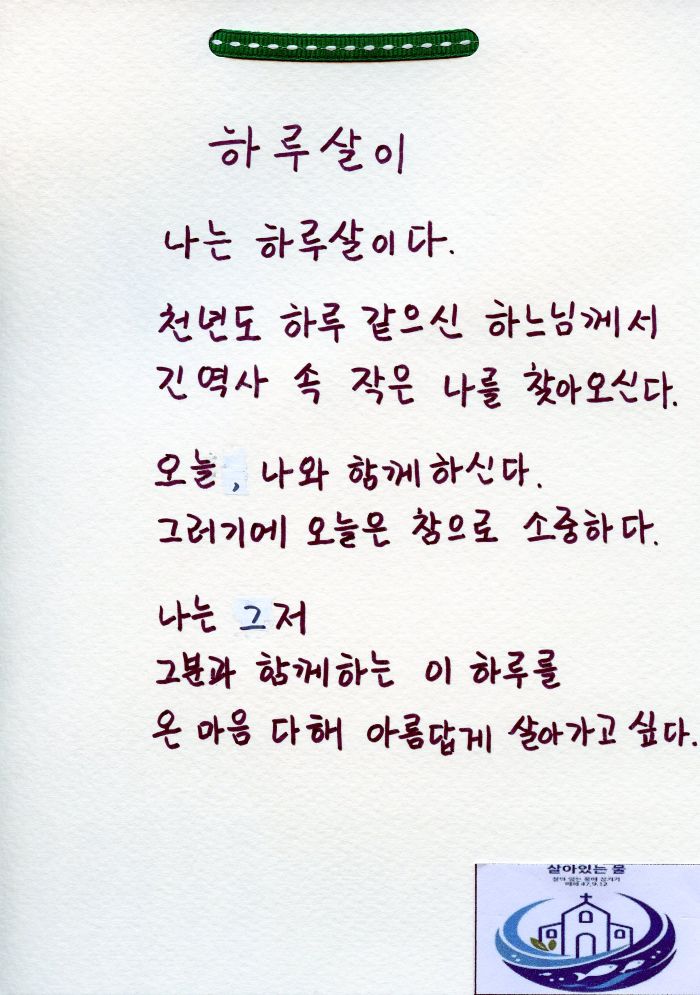 하루살이
나는 하루살이다.
천년도 하루 같으신 하느님께서
긴 역사 속 작은 나를 찾아오신다.
오늘, 나와 함께하신다.
그러기에 오늘은 참으로 소중하다.
나는 그저
그분과 함께하는 이 하루를
온 마음 다해 아름답게 살아가고 싶다.
살아있는 물
47,9.12